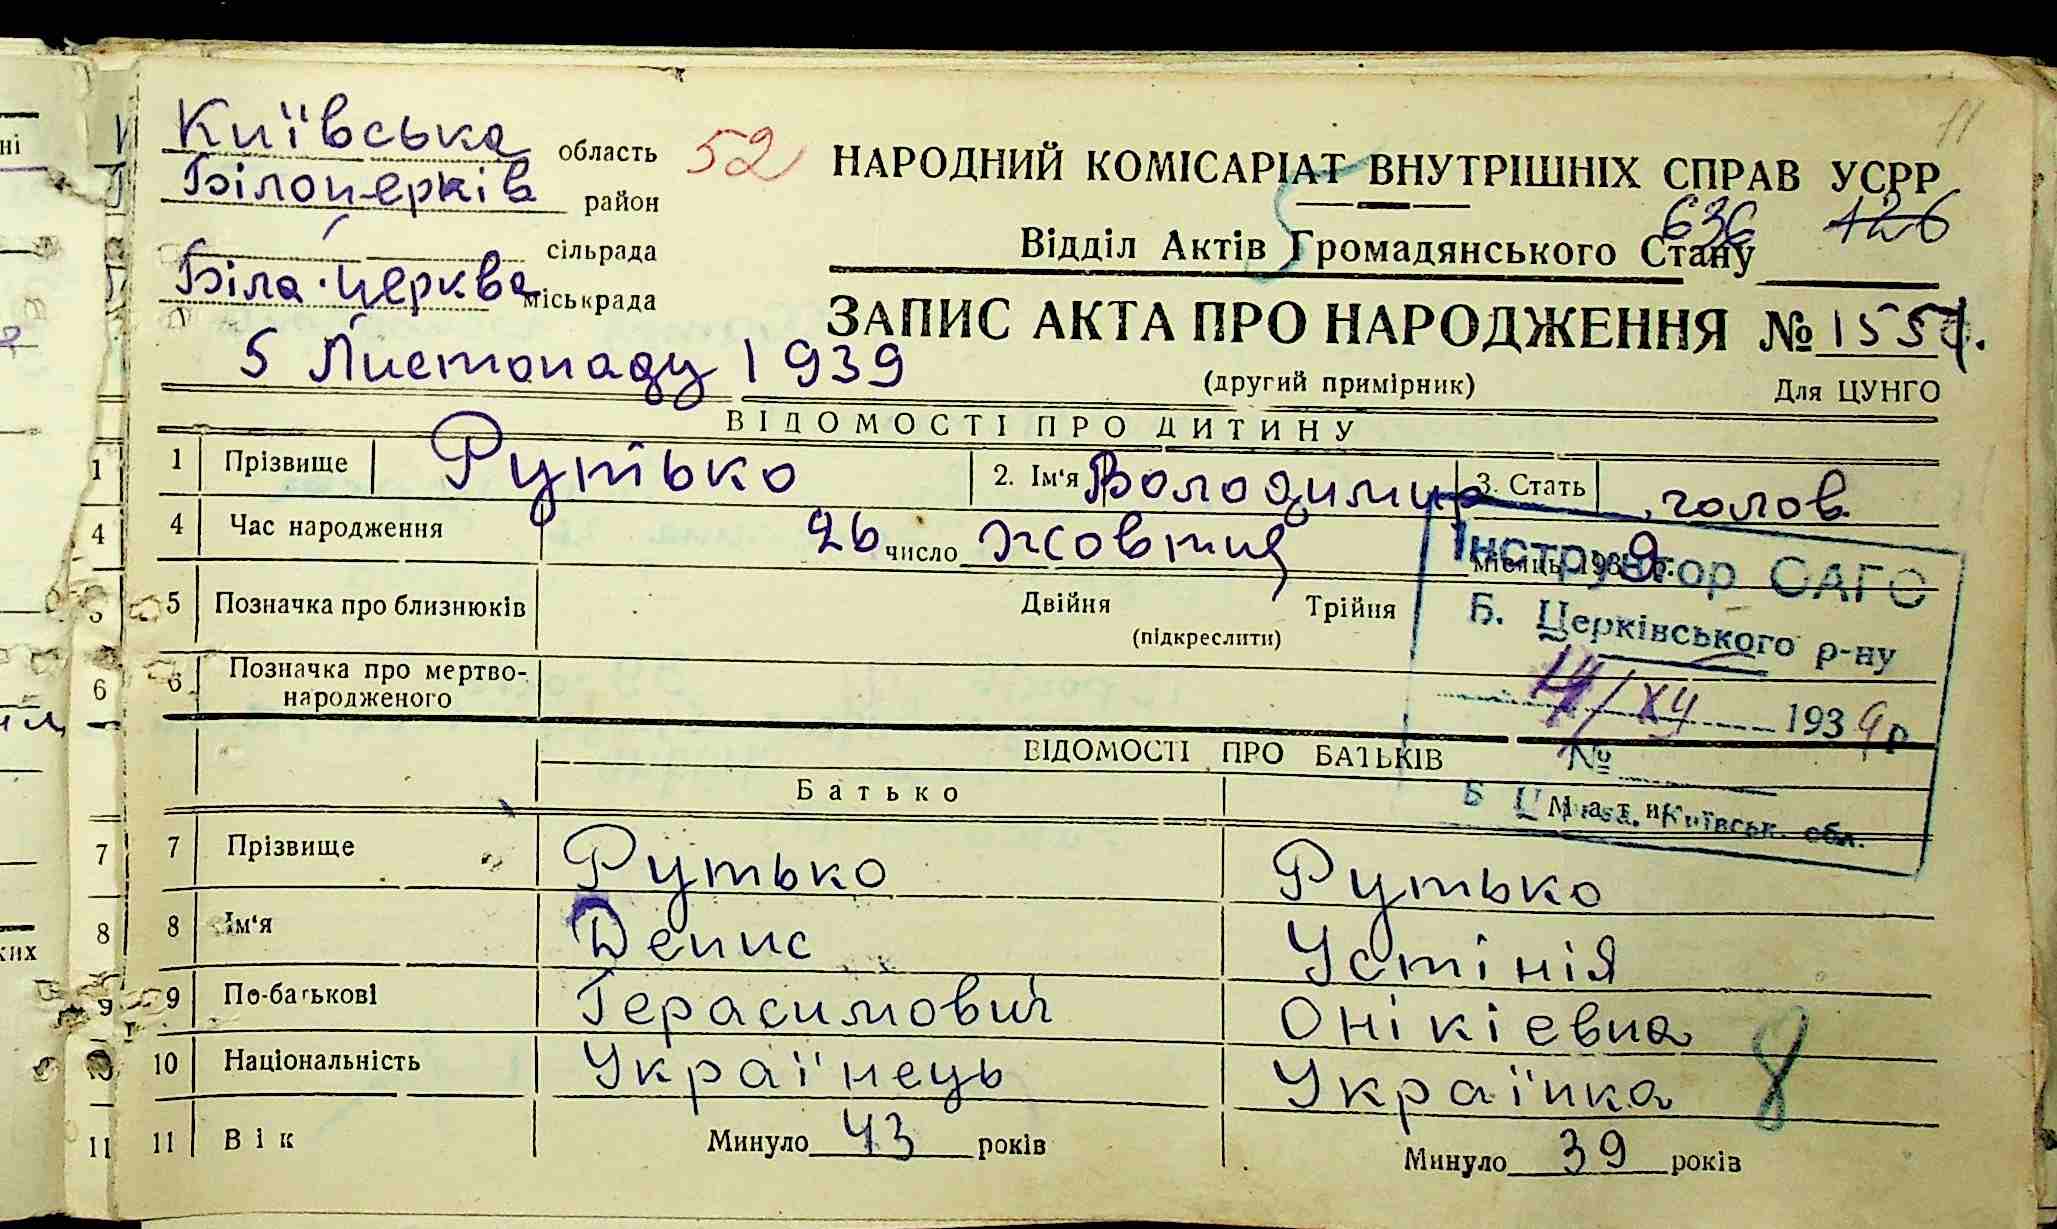 Київська область 52 НАРОДНИЙ КОМІСАРІАТ ВНУТРІШНІХ СПРАВ УСРР 11
Білоцерків район
сільрада Відділ Актів Громадянського Стану 636 126
Біла-Церква міськрада
ЗАПИС АКТА ПРО НАРОДЖЕННЯ № 1557.
5 Листопаду 1939 (другий примірник) Для ЦУНГО
ВІДОМОСТІ ПРО ДИТИНУ
1 Прізвище Рутько 2. Ім'я Володимир 3. Стать чолов.
4 Час народження 26 число жовтня місяць 1939 р.
5 Позначка про близнюків Двійня Трійня
(підкреслити)
6 Позначка про мертво-
народженого
Інструктор ОАГС
Б. Церківського р-ну
193 9 р
№
Київськ. обл.
ВІДОМОСТІ ПРО БАТЬКІВ
Батько Мати
7 Прізвище Рутько Рутько
8 Ім'я Денис Устінія
9 По-батькові Герасимович Онікієвна
10 Національність Українець Українка 8
11 Вік Минуло 43 років Минуло 39 років